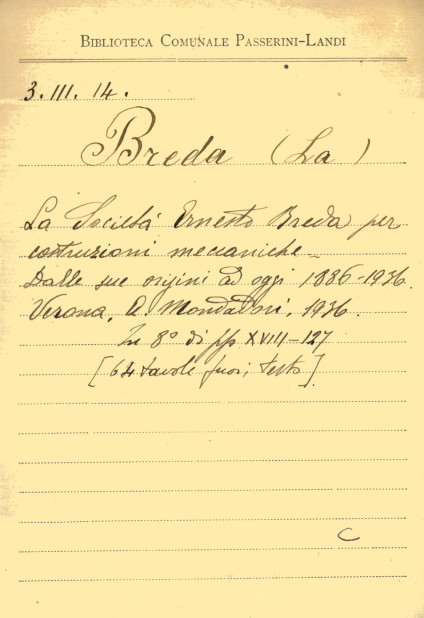 BIBLIOTECA COMUNALE PASSERINI-LANDI
3. III. 14.
Breda (La)
La Società Ernesto Breda per
costruzioni meccaniche_
Dalle sue origini ad oggi 1886-1936.
Verona, A. Mondadori, 1936.
In 8° di pp XVIII-127
[64 tavole fuori testo]
C